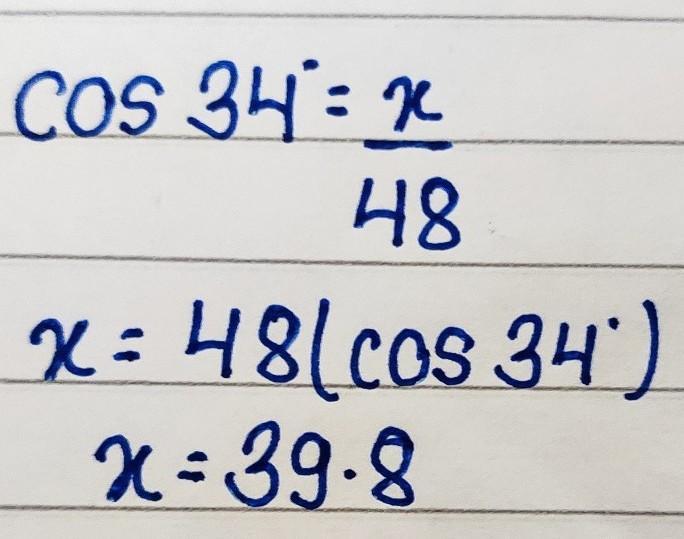 cos 34° = x/48
x = 48(cos 34°)
x = 39.8